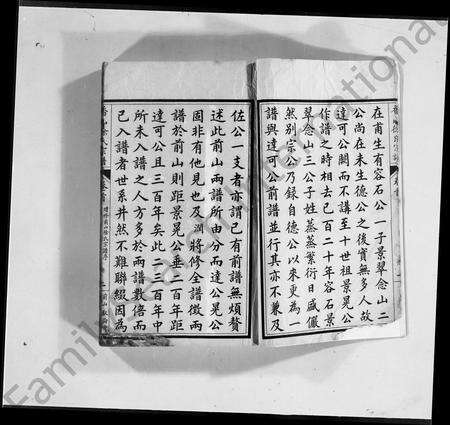 在甫生有容石公一子景翠念山二
公尚在未生德公之後實無多人故
達可公闕而不講至十世祖景晃公
作譜之時相去已百二十年容石景
翠念山三公子姓蒸蒸繁衍日盛儼
然別宗公乃錄自德公以來更為一
譜與達可公前譜並行其亦不兼及
佐公一支者亦謂已有前譜無煩贅
述此前山兩譜所由分而達公晃公
固非有他見也及潤將修全譜徵兩
譜於前山則距景晃公垂二百年距
達可公且三百年矣此二三百年中
所未入譜之人方多於兩譜數倍而
已入譜者世系井然不難聯綴因為
Family Search International